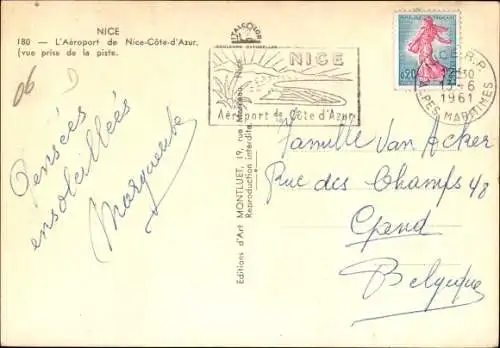 NICE
180 — L'Aéroport de Nice-Côte-d'Azur,
(vue prise de la piste.
06
Pensées
ensoleillées
Marguerite
Editions d'Art MONTLUET, 19, rue Nice
Reproduction interdite.
NICE
Aéroport de Côte d'Azur
0,20
R.P.
12 30
15-6
1961
ALPES MARITIMES
Famille Van Acker
Rue des Champs 48
Gand
Belgique